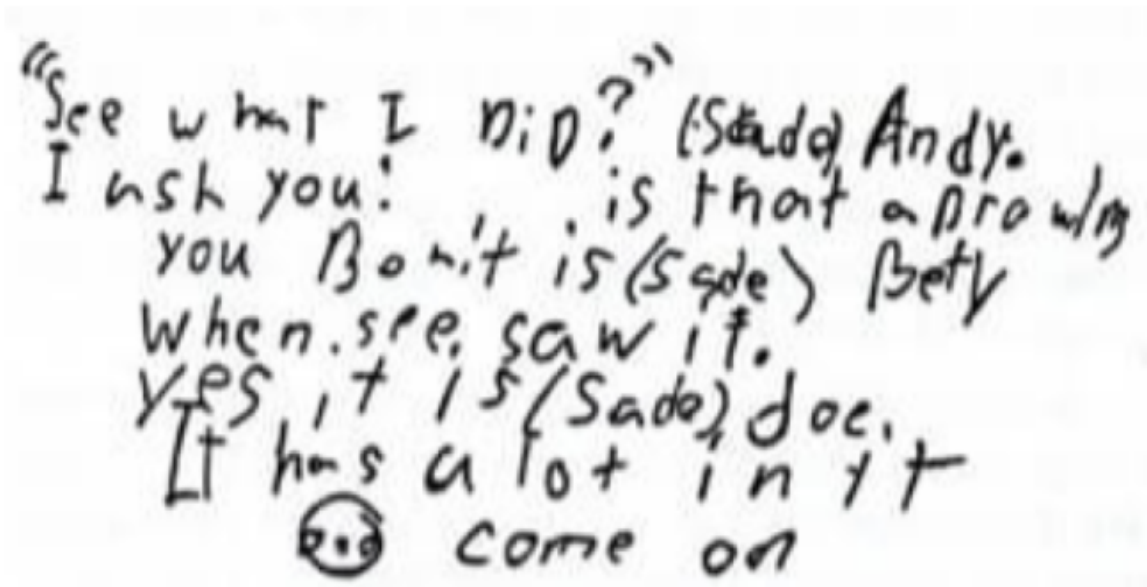 "See what I DiD?" (Sade) Andy.
I ask you! is that a
you Don't is (Sade) Bety
when. see. saw it.
yes it is (Sade) doc.
It has a lot in yt
come on